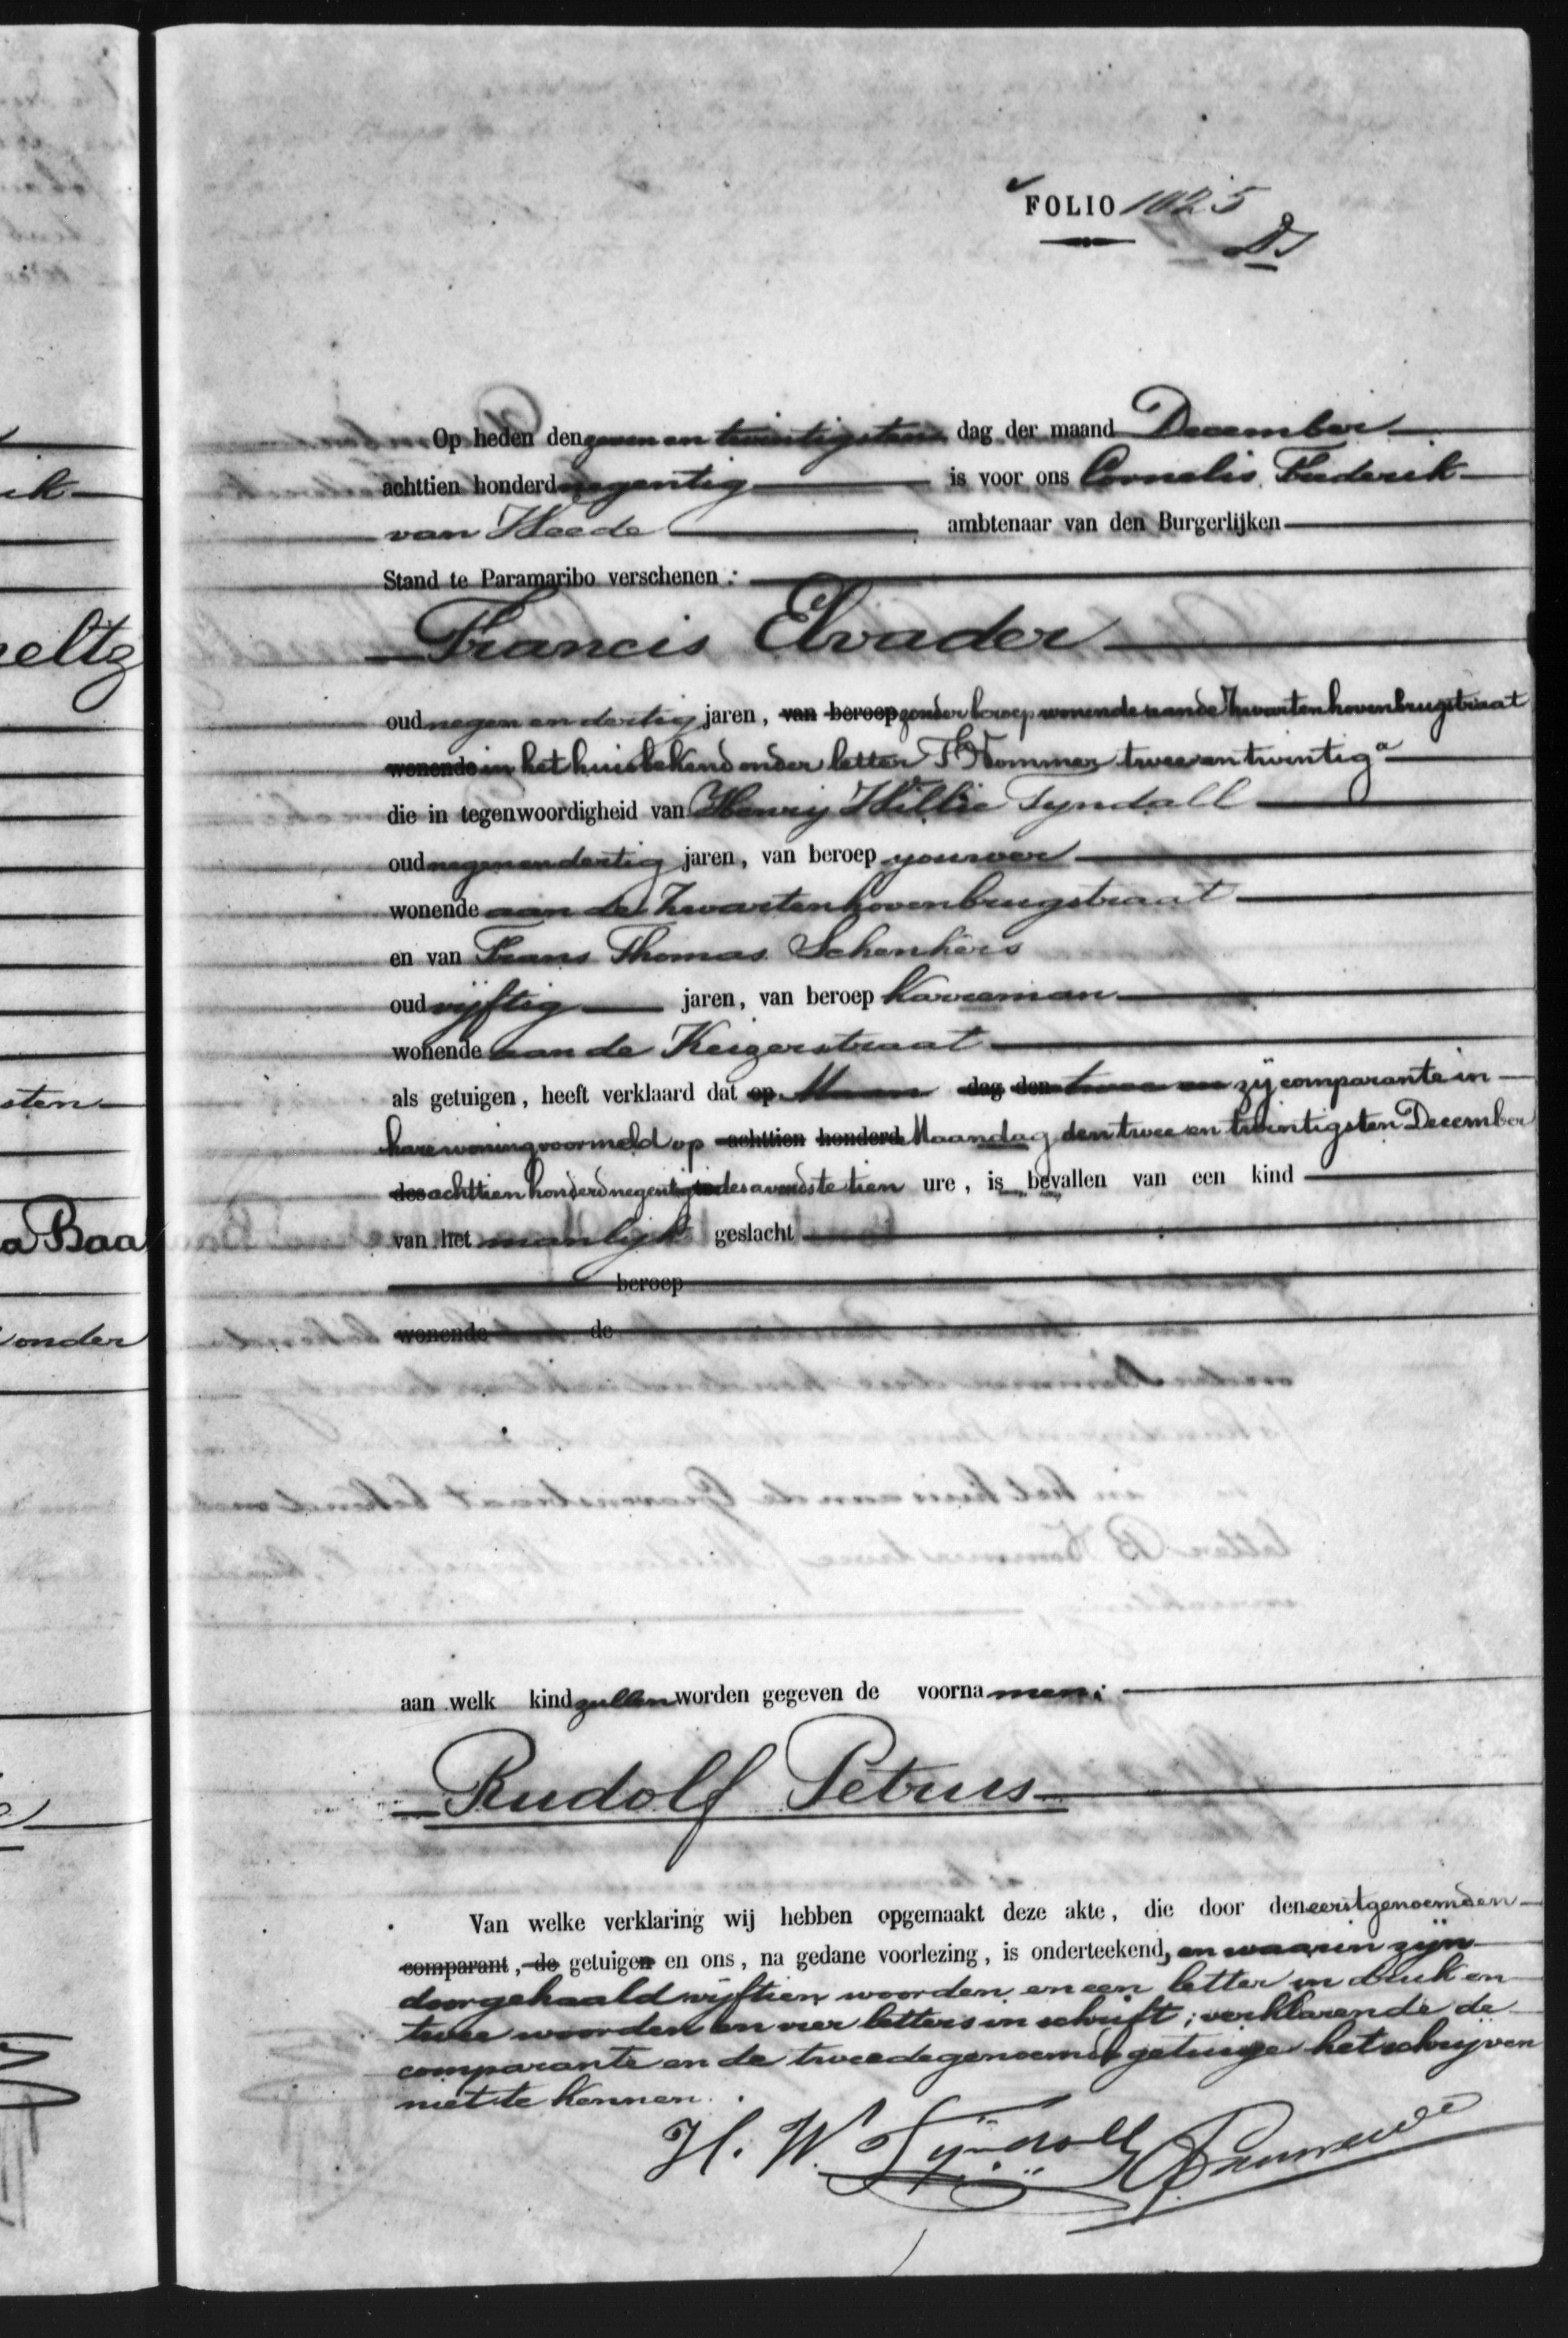 ik
neltz
sten
a Baa
onder
FOLIO 1025
Op heden den zeven en twintigsten dag der maand December
achttien honderd negentig is voor ons Cornelis Frederik
van Heede ambtenaar van den Burgerlijken
Stand te Paramaribo verschenen :
Francis Elvader
oud negen en dertig jaren, van beroep zonder beroep wonende aan de Zwartenhovenbrugstraat
wonende in het huis bekend onder letter F Nommer twee en twintig a
die in tegenwoordigheid van Henry Willie Tyndall
oud negen en dertig jaren, van beroep
wonende aan de Zwartenhovenbrugstraat
en van Frans Thomas Schenkers
oud vijftig jaren, van beroep Karreman
wonende aan de Keizerstraat
als getuigen, heeft verklaard dat op Maan dag den twee en zij comparante in
hare woning voormeld op achttien honderd Maandag den twee en twintigsten December
des achttien honderd negentig des avonds te tien ure, is bevallen van een kind
van het manlijk geslacht
beroep
wonende de
aan welk kind zullen worden gegeven de voornamen:
Rudolf Petrus
Van welke verklaring wij hebben opgemaakt deze akte, die door den eerstgenoemden
comparant, de getuigen en ons, na gedane voorlezing, is onderteekend, en waarin zijn
doorgehaald vijftien woorden en een letter in druk en
twee woorden en vier letters in schrift; verklarende de
comparante en de tweedegenoemde getuige het schrijven
niet te kennen.
H. W. Tyndall